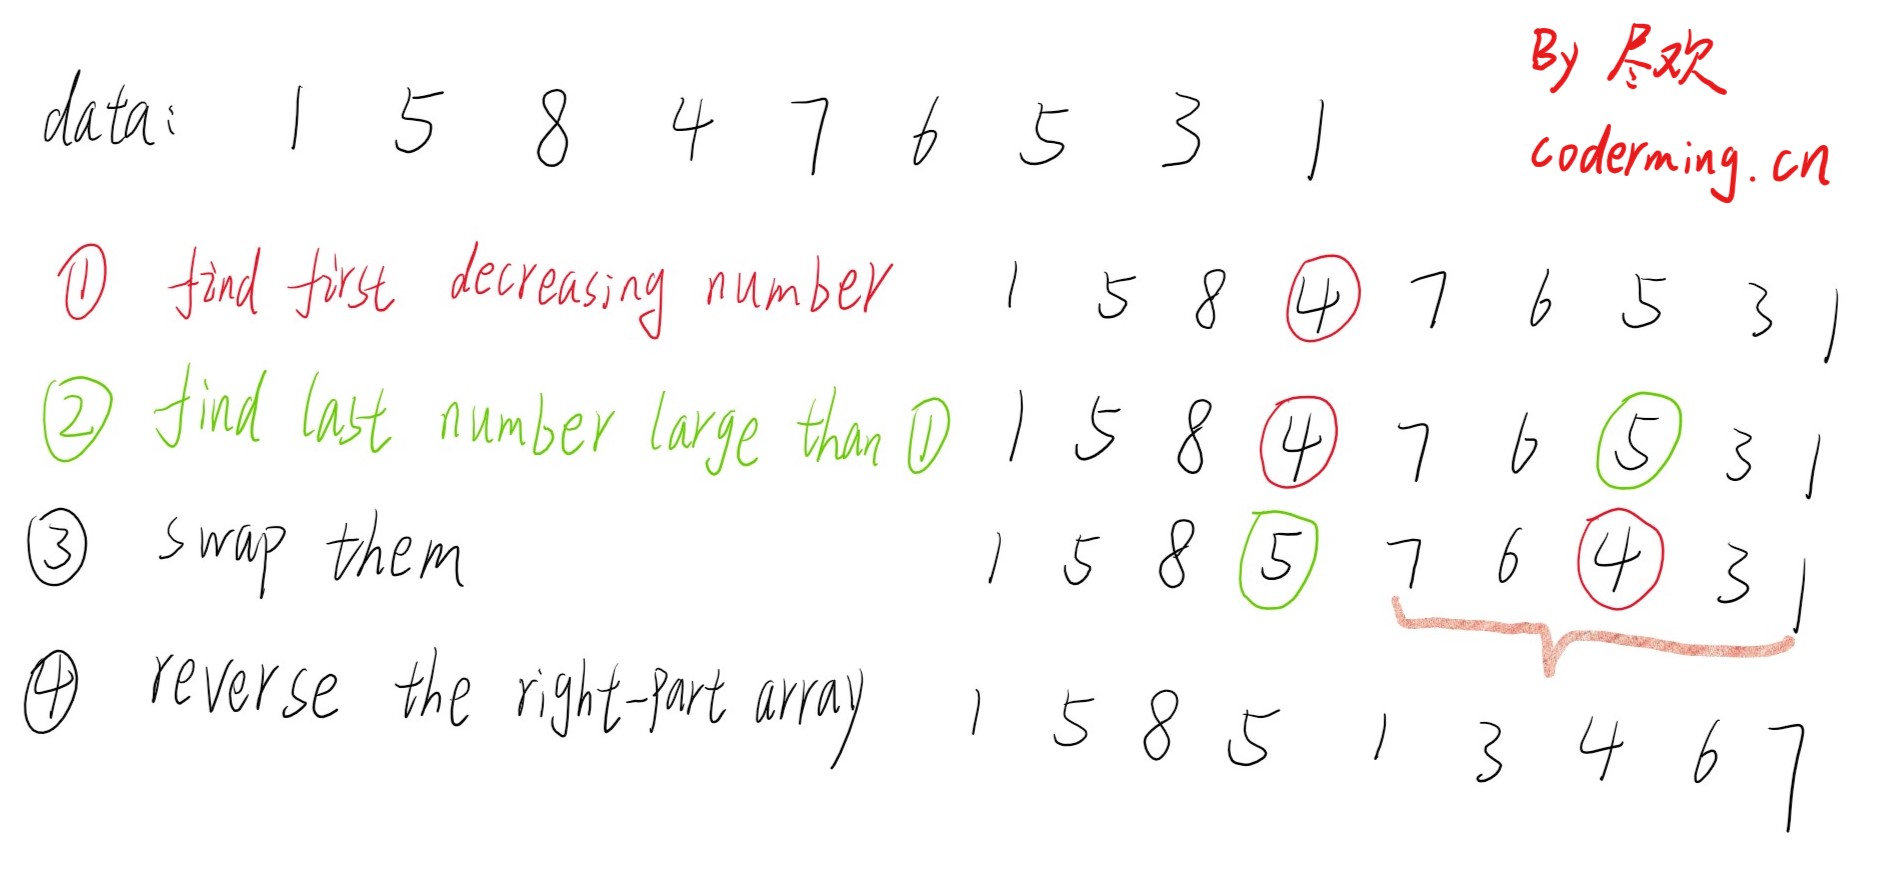 By 尽欢
data: 1 5 8 4 7 6 5 3 1
coderming.cn
① find first decreasing number 1 5 8 4 7 6 5 3 1
② find last number large than ① 1 5 8 4 7 6 5 3 1
③ swap them 1 5 8 5 7 6 4 3 1
④ reverse the right-part array 1 5 8 5 1 3 4 6 7